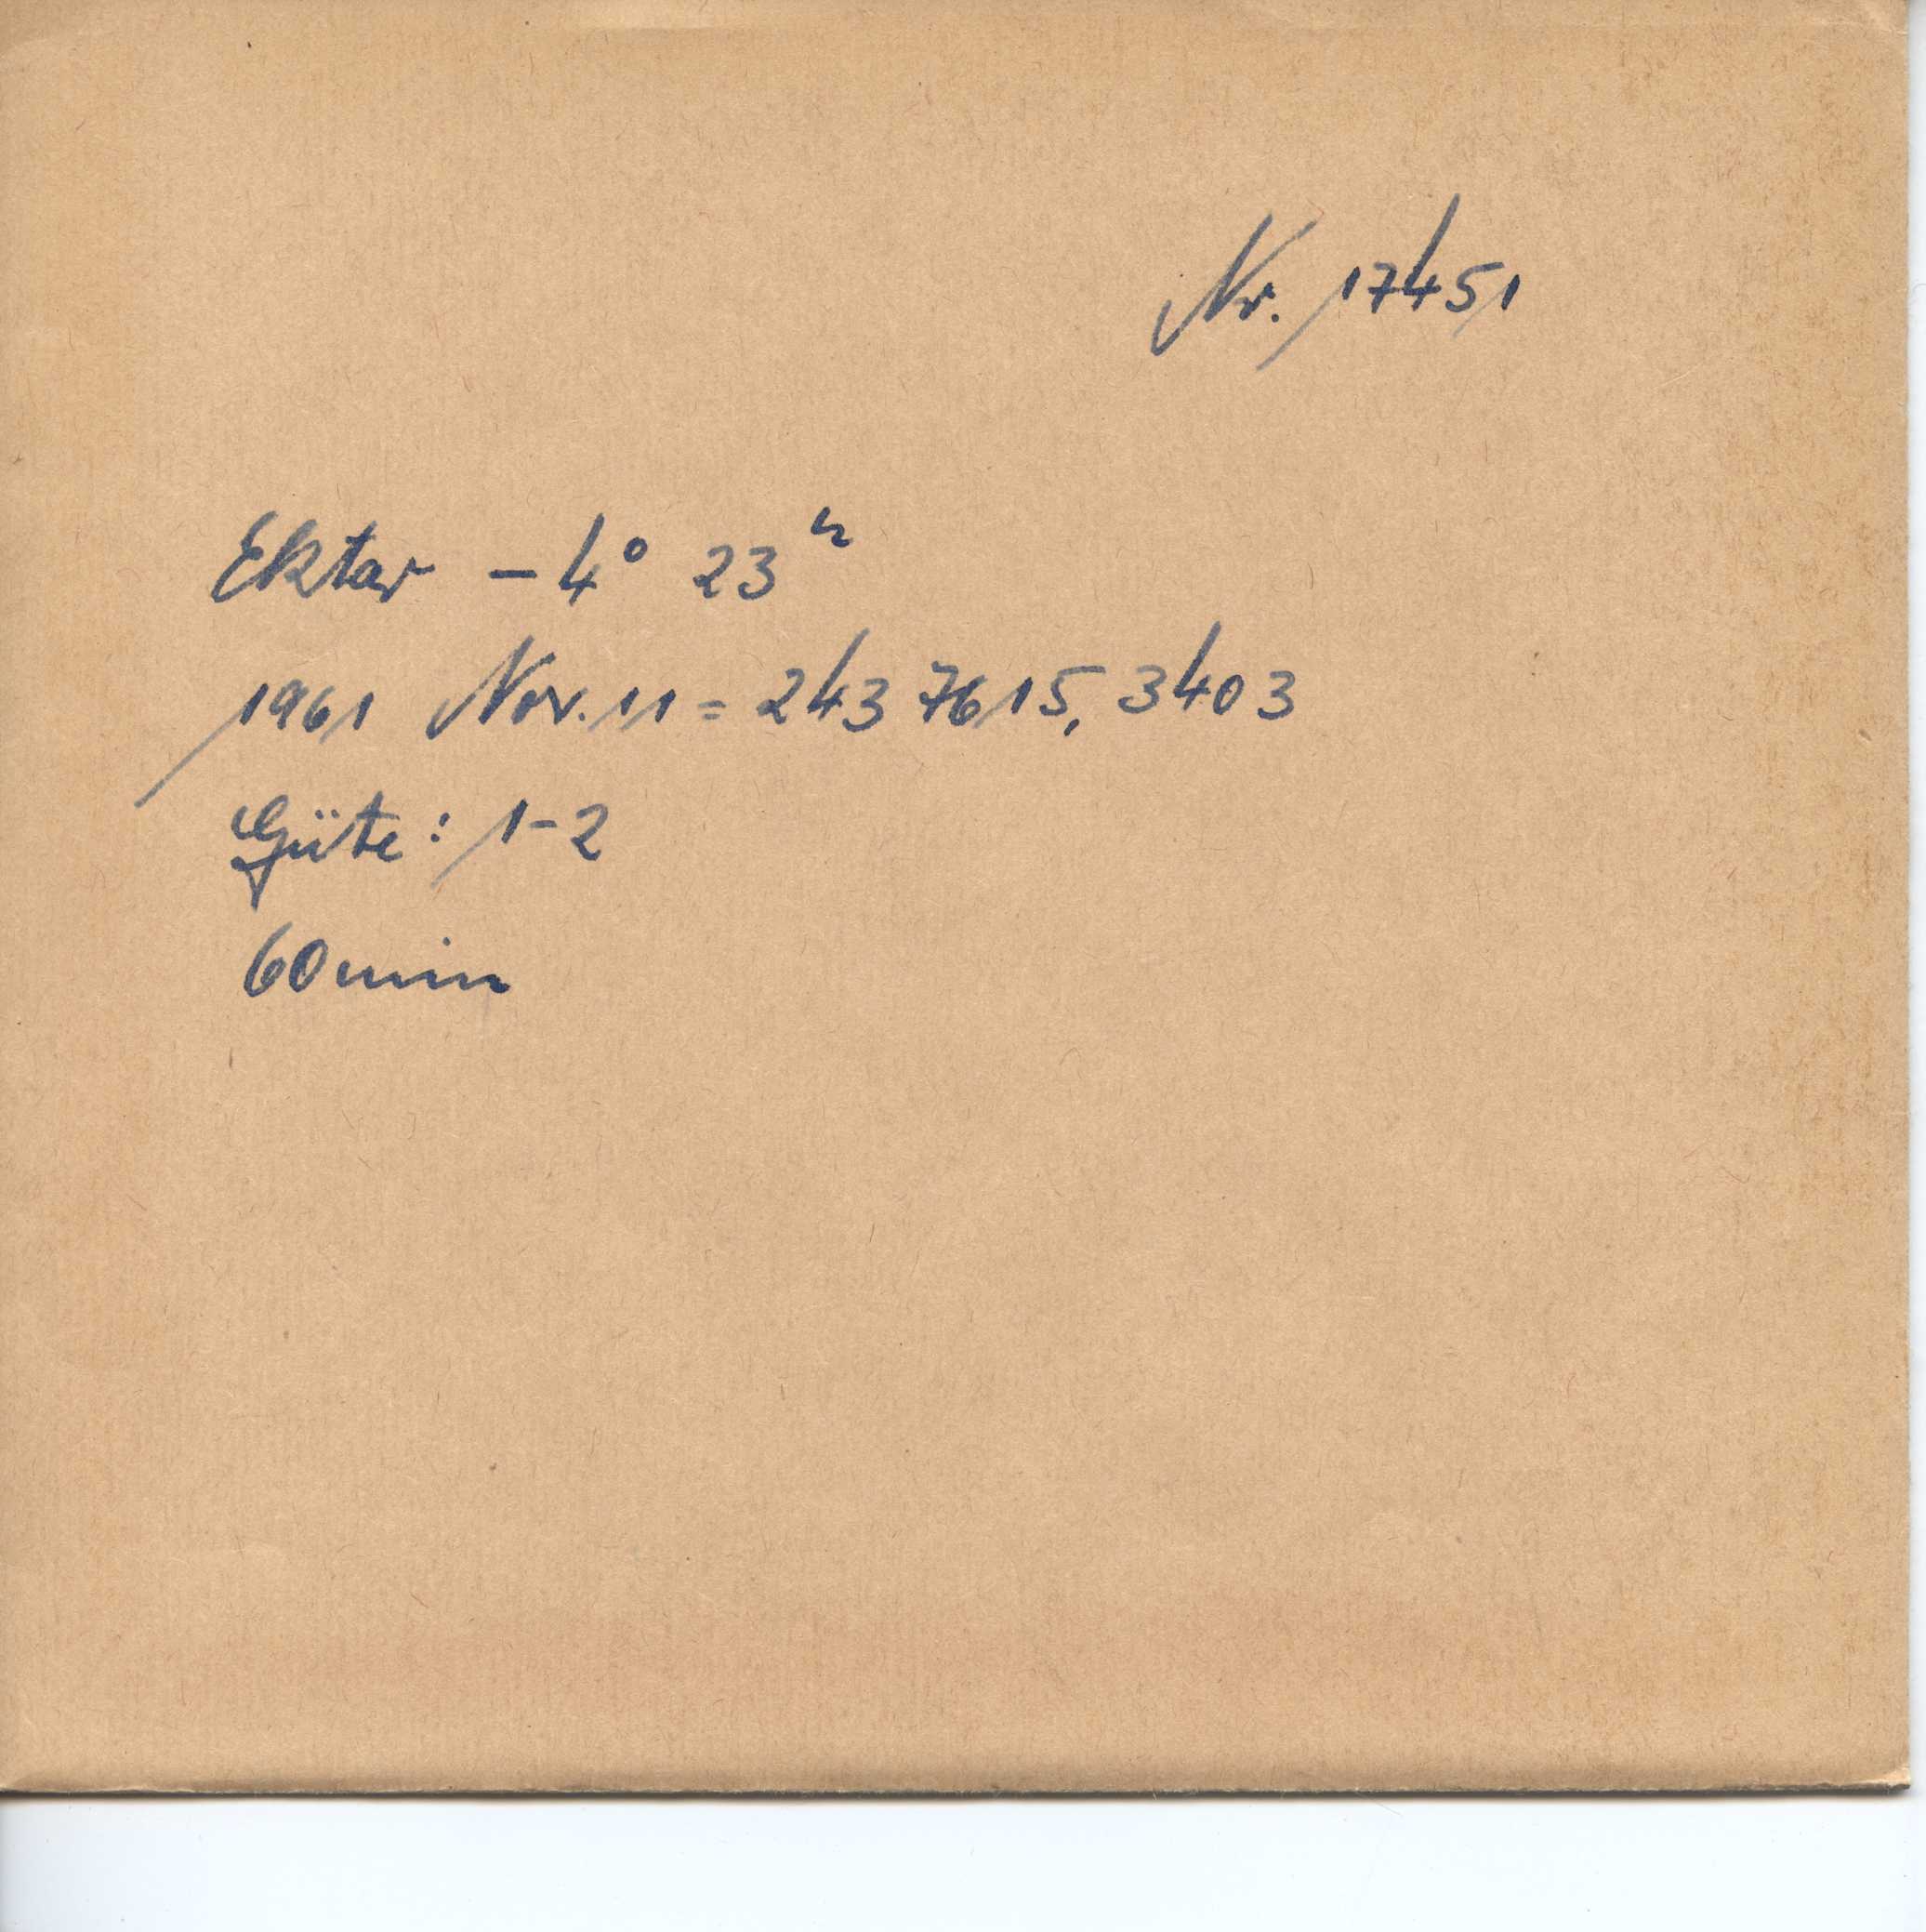 Nr. 17451
Ektar - 4° 23ʰ
1961 Nov. 11 = 243 7615,3403
Güte: 1-2
60 min